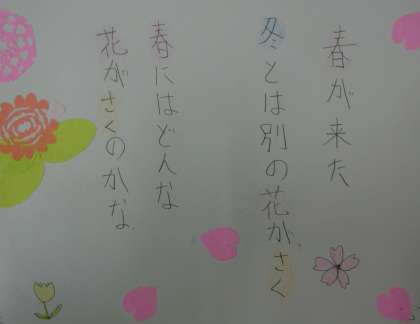 春が来た
冬とは別の花が、さく
春にはどんな
花がさくのかな